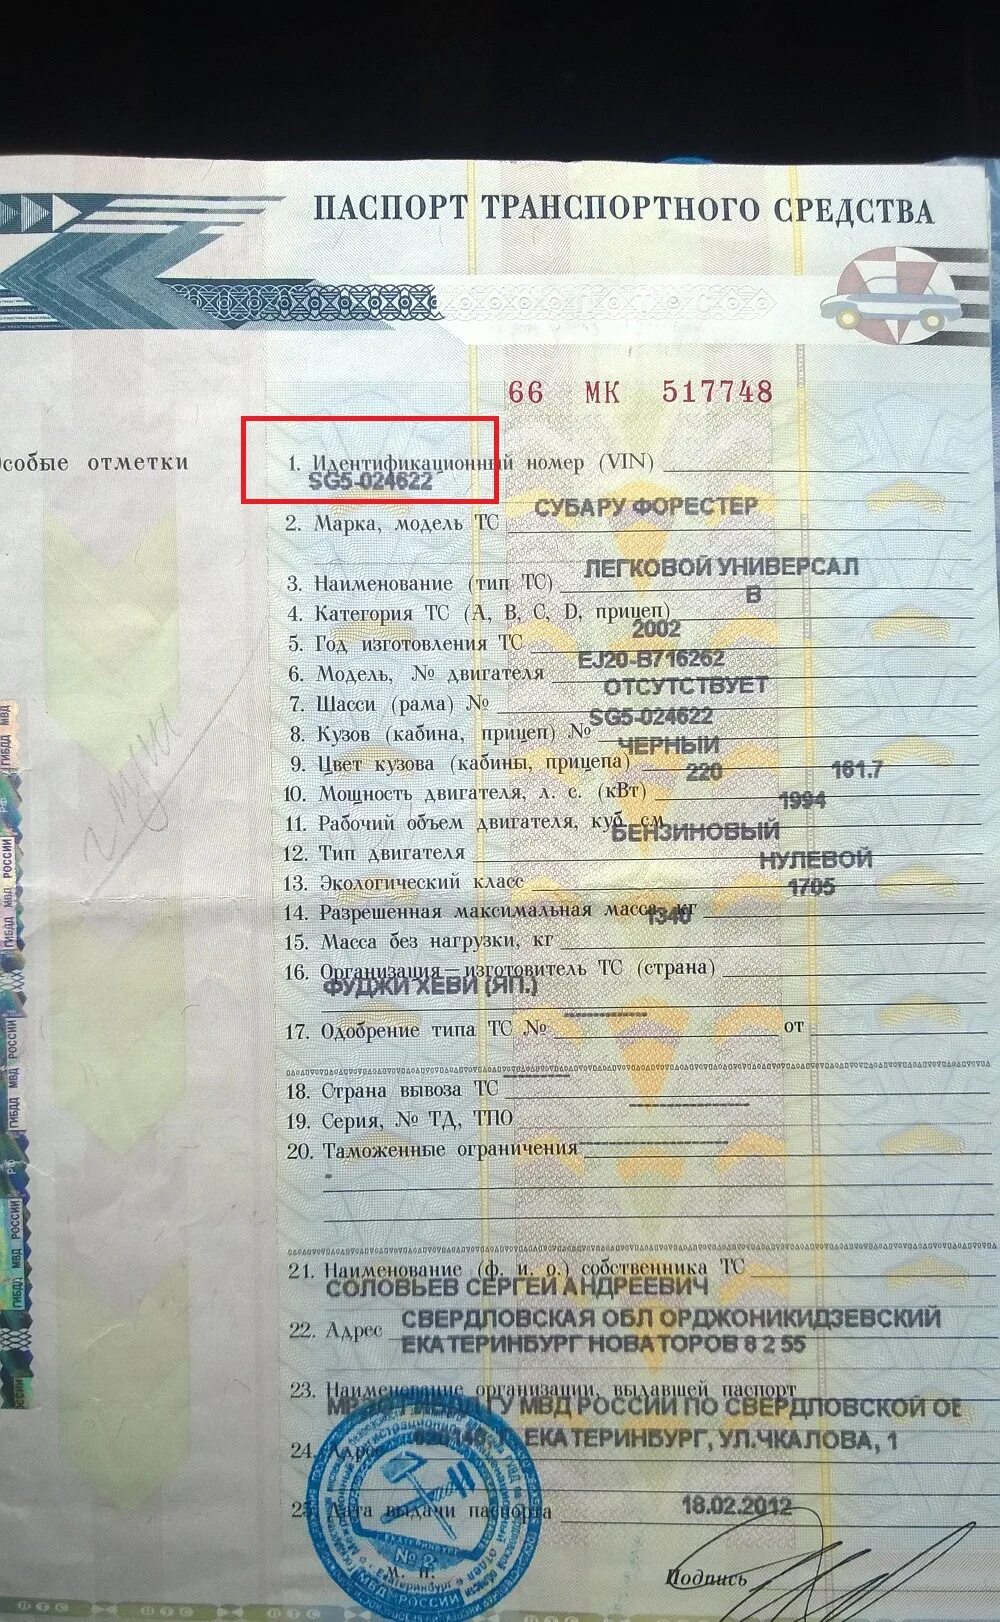 ПАСПОРТ ТРАНСПОРТНОГО СРЕДСТВА
66 МК 517748
особые отметки
1. Идентификационный номер (VIN)
SG5-024622
2. Марка, модель ТС СУБАРУ ФОРЕСТЕР
3. Наименование (тип ТС) ЛЕГКОВОЙ УНИВЕРСАЛ
4. Категория ТС (A, B, C, D, прицеп) B
5. Год изготовления ТС 2002
6. Модель, № двигателя EJ20-B716262
7. Шасси (рама) № ОТСУТСТВУЕТ
8. Кузов (кабина, прицеп) № SG5-024622
9. Цвет кузова (кабины, прицепа) ЧЕРНЫЙ
10. Мощность двигателя, л. с. (кВт) 220 161.7
11. Рабочий объем двигателя, куб. см 1994
12. Тип двигателя БЕНЗИНОВЫЙ
13. Экологический класс НУЛЕВОЙ
14. Разрешенная максимальная масса, кг 1705
15. Масса без нагрузки, кг 1340
16. Организация – изготовитель ТС (страна)
ФУДЖИ ХЕВИ (ЯП.)
17. Одобрение типа ТС № от
18. Страна вывоза ТС
19. Серия, № ТД, ТПО
20. Таможенные ограничения
21. Наименование (ф. и. о.) собственника ТС
СОЛОВЬЕВ СЕРГЕЙ АНДРЕЕВИЧ
22. Адрес СВЕРДЛОВСКАЯ ОБЛ ОРДЖОНИКИДЗЕВСКИЙ
ЕКАТЕРИНБУРГ НОВАТОРОВ 8 2 55
23. Наименование организации, выдавшей паспорт
МРЭО ГИБДД ГУ МВД РОССИИ ПО СВЕРДЛОВСКОЙ ОБ
24. Адрес ЕКАТЕРИНБУРГ, УЛ.ЧКАЛОВА, 1
25. Дата выдачи паспорта 18.02.2012
М. П.
Подпись
№ 2
МВД РОССИИ
ГИБДД МВД РОССИИ